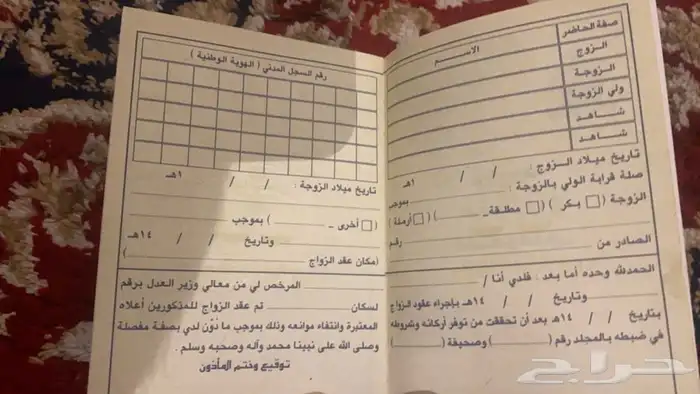 صفة الحاضر
الاسم
الزوج
الزوجة
ولي الزوجة
شاهد
شاهد
تاريخ ميلاد الزوج : / / ١هـ
صلة قرابة الولي بالزوجة :
الزوجة ( بكر ) ( مطلقة _ ) ( أرملة ) بموجب
الصادر من رقم
رقم السجل المدني ( الهوية الوطنية )
تاريخ ميلاد الزوجة : / / ١هـ
( أخرى _ ) بموجب
وتاريخ / / ١٤هـ
(مكان عقد الزواج )
الحمدلله وحده أما بعد : فلدي أنا /
المرخص لي من معالي وزير العدل برقم
وتاريخ / / ١٤هـ بإجراء عقود الزواج
لسكان تم عقد الزواج للمذكورين أعلاه
بتاريخ / / ١٤هـ بعد أن تحققت من توفر أركانه وشروطه
المعتبرة وانتفاء موانعه وذلك بموجب ما دُون لدي بصفة مفصلة
في ضبطه بالمجلد رقم ( ) وصحيفة ( )
وصلى الله على نبينا محمد وآله وصحبه وسلم .
توقيع وختم المأذون
حراج